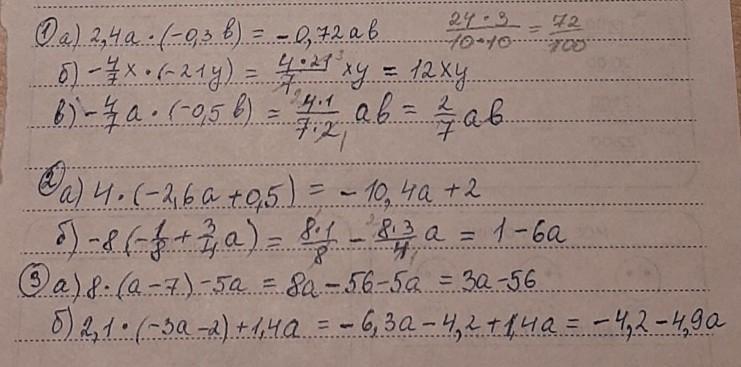 ① а) 2,4a · (-0,3 b) = -0,72 ab   24·3/10·10 = 72/100
б) -4/7 x · (-21y) = 4·21³/7 xy = 12xy
в) -4/7 a · (-0,5 b) = ²4·1/7·2₁ ab = 2/7 ab
② а) 4 · (-2,6a + 0,5) = -10,4a + 2
б) -8 (-1/8 + 3/4 a) = 8·1/8 - ²8·3/4₁ a = 1 - 6a
③ а) 8 · (a - 7) - 5a = 8a - 56 - 5a = 3a - 56
б) 2,1 · (-3a - 2) + 1,4a = -6,3a - 4,2 + 1,4a = -4,2 - 4,9a